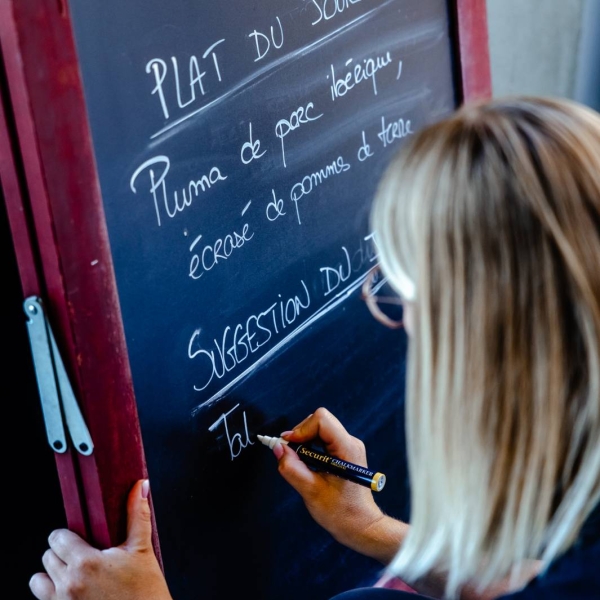 PLAT DU JOUR
Pluma de porc ibérique,
écrasé de pommes de terre
SUGGESTION DU
Tal
Securit CHALKMARKER